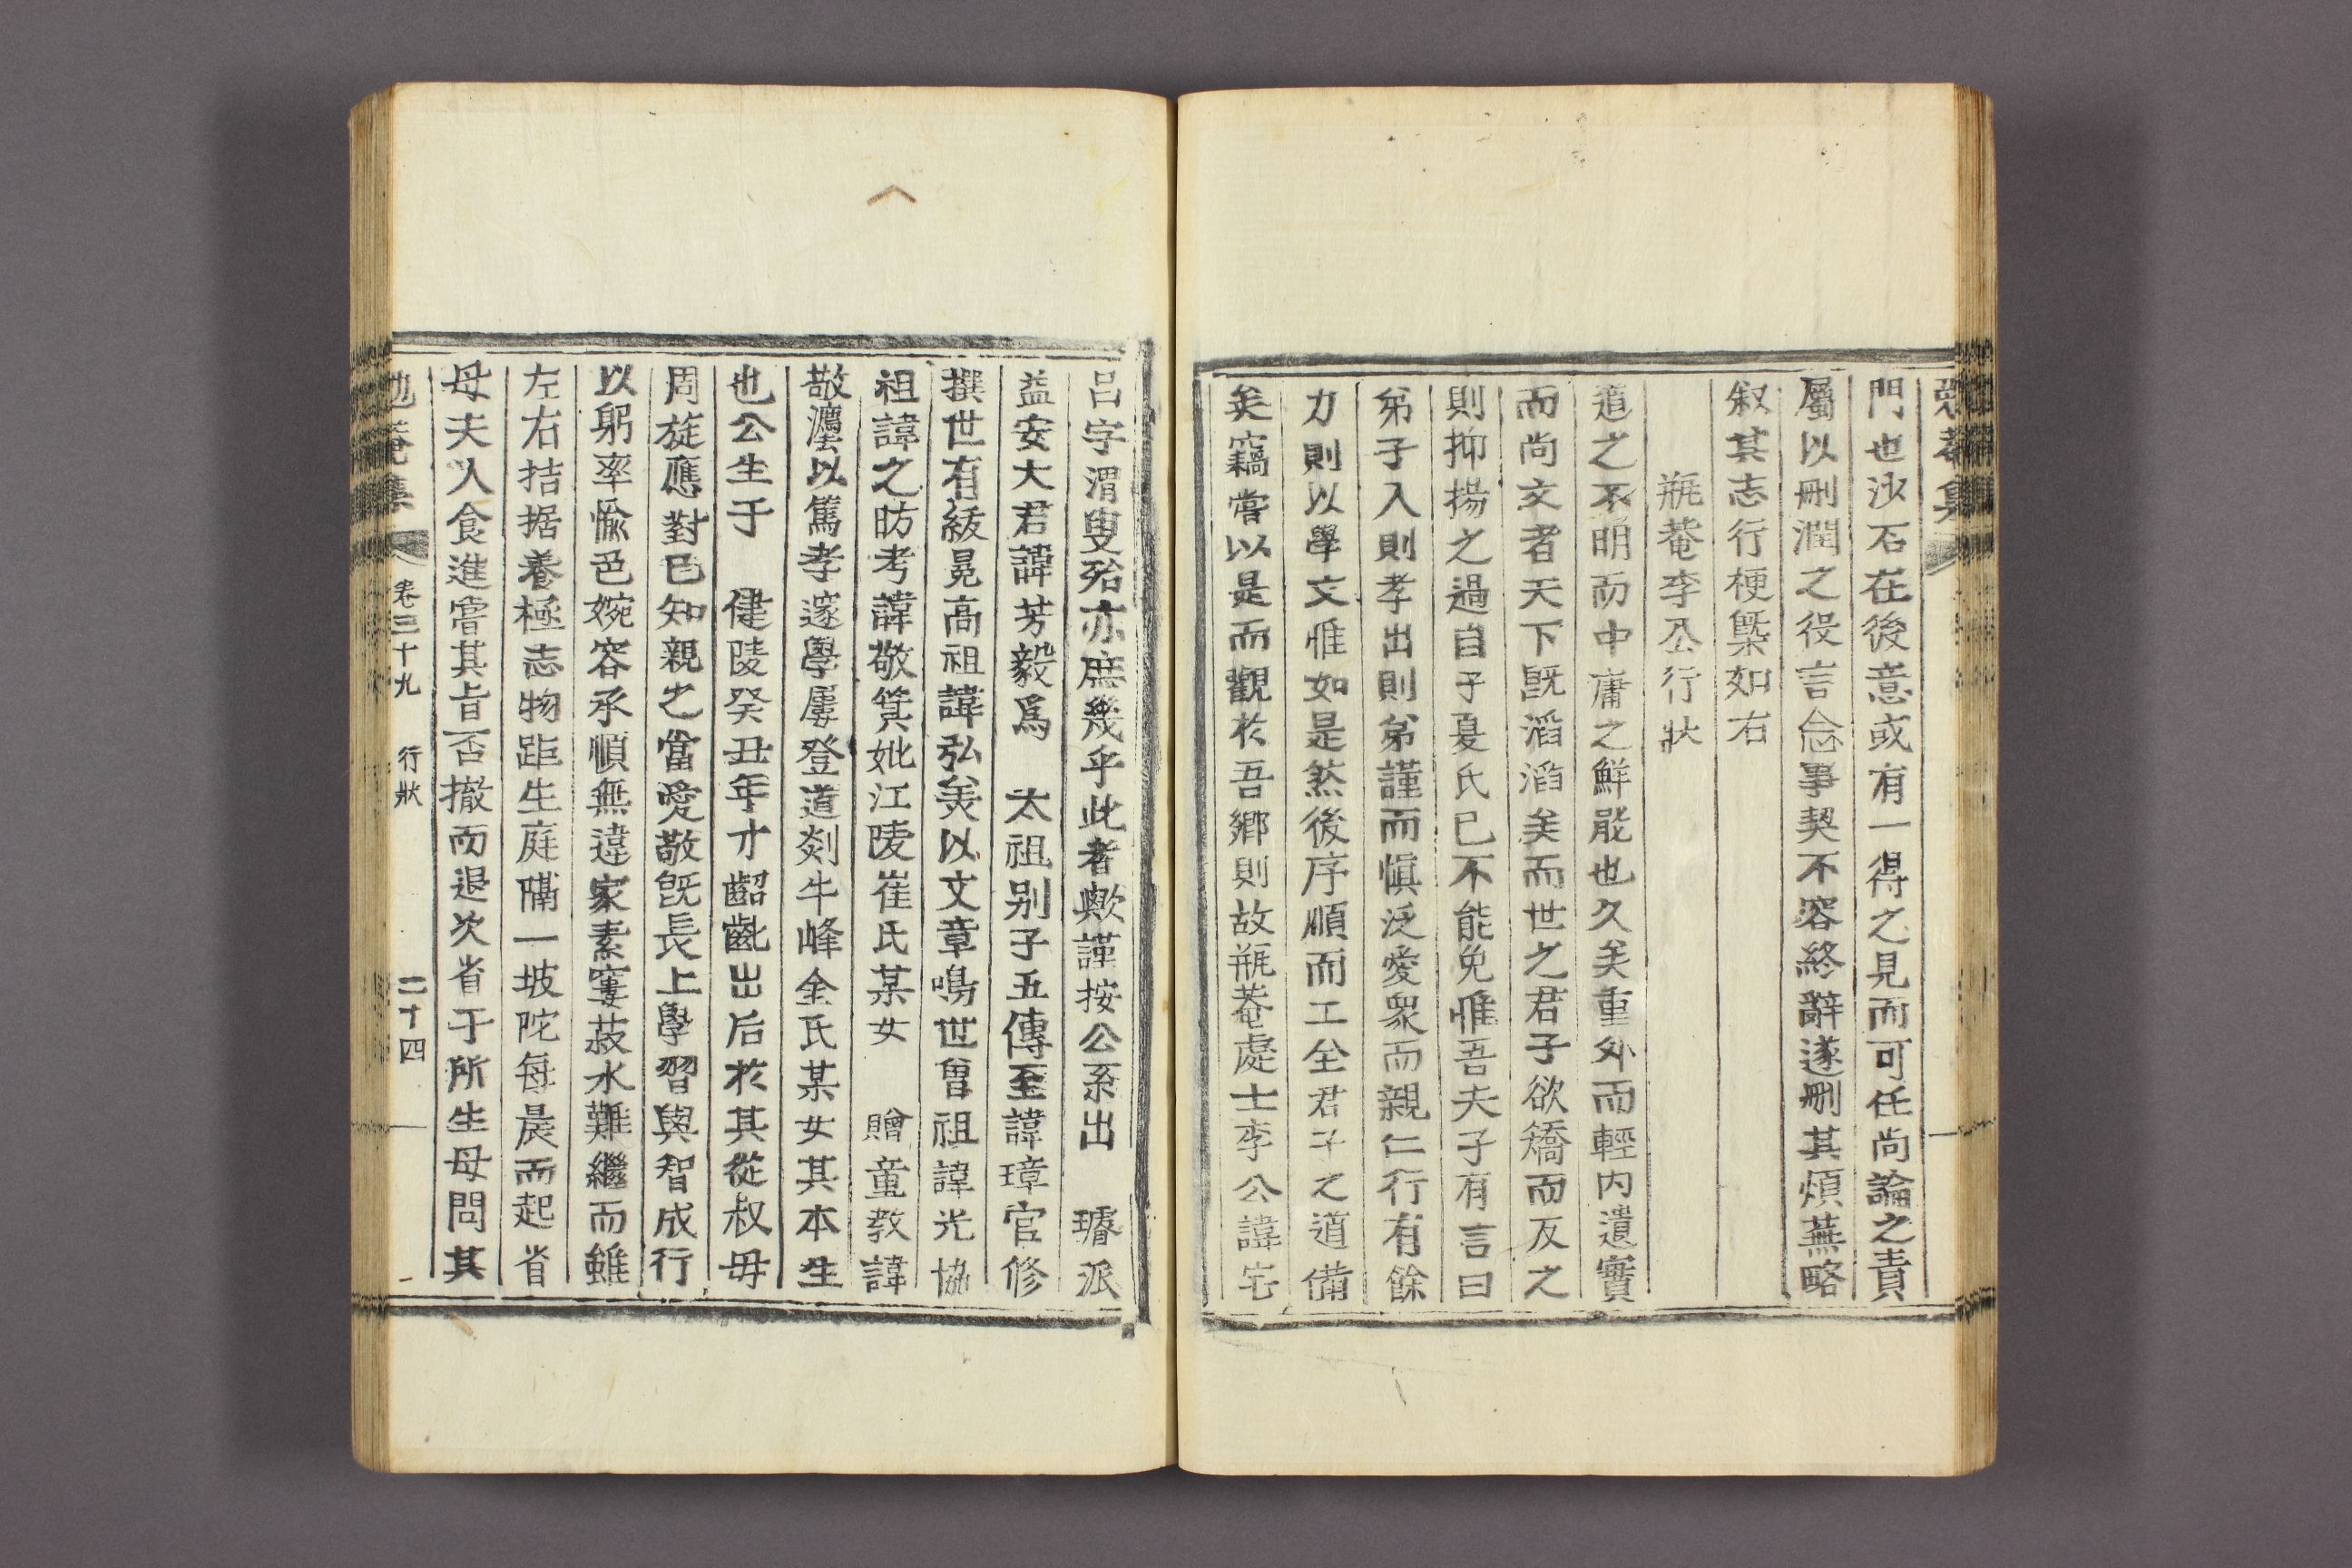 門也沙石在後意或有一得之見而可任尙論之責
屬以刪潤之役言念事契不容終辭遂刪其煩蕪略
叙其志行梗槩如右
甁菴李公行狀
道之不明而中庸之鮮能也久矣重外而輕內遺實
而尙文者天下旣滔滔矣而世之君子欲矯而反之
則抑揚之過自子夏氏已不能免惟吾夫子有言曰
弟子入則孝出則弟謹而愼泛愛衆而親仁行有餘
力則以學文惟如是然後序順而工全君子之道備
矣竊嘗以是而觀於吾鄕則故甁菴處士李公諱宅
呂字渭叟殆亦庶幾乎此者歟謹按公系出 璿派
益安大君諱芳毅爲 太祖别子五傳至諱璋官修
撰世有紱冕高祖諱弘美以文章鳴世曾祖諱光協
祖諱之昉考諱敬箕妣江陵崔氏某女 贈童敎諱
敬瀍以篤孝邃學屢登道剡牛峰金氏某女其本生
也公生于 健陵癸丑年才齠齔出后於其從叔母
周旋應對已知親之當愛敬旣長上學習與智成行
以躬率愉色婉容承順無違家素窶菽水難繼而雖
左右拮据養極志物距生庭隔一坡陀每晨而起省
母夫人食進嘗其旨否撤而退次省于所生母問其
卷三十九 行狀 二十四